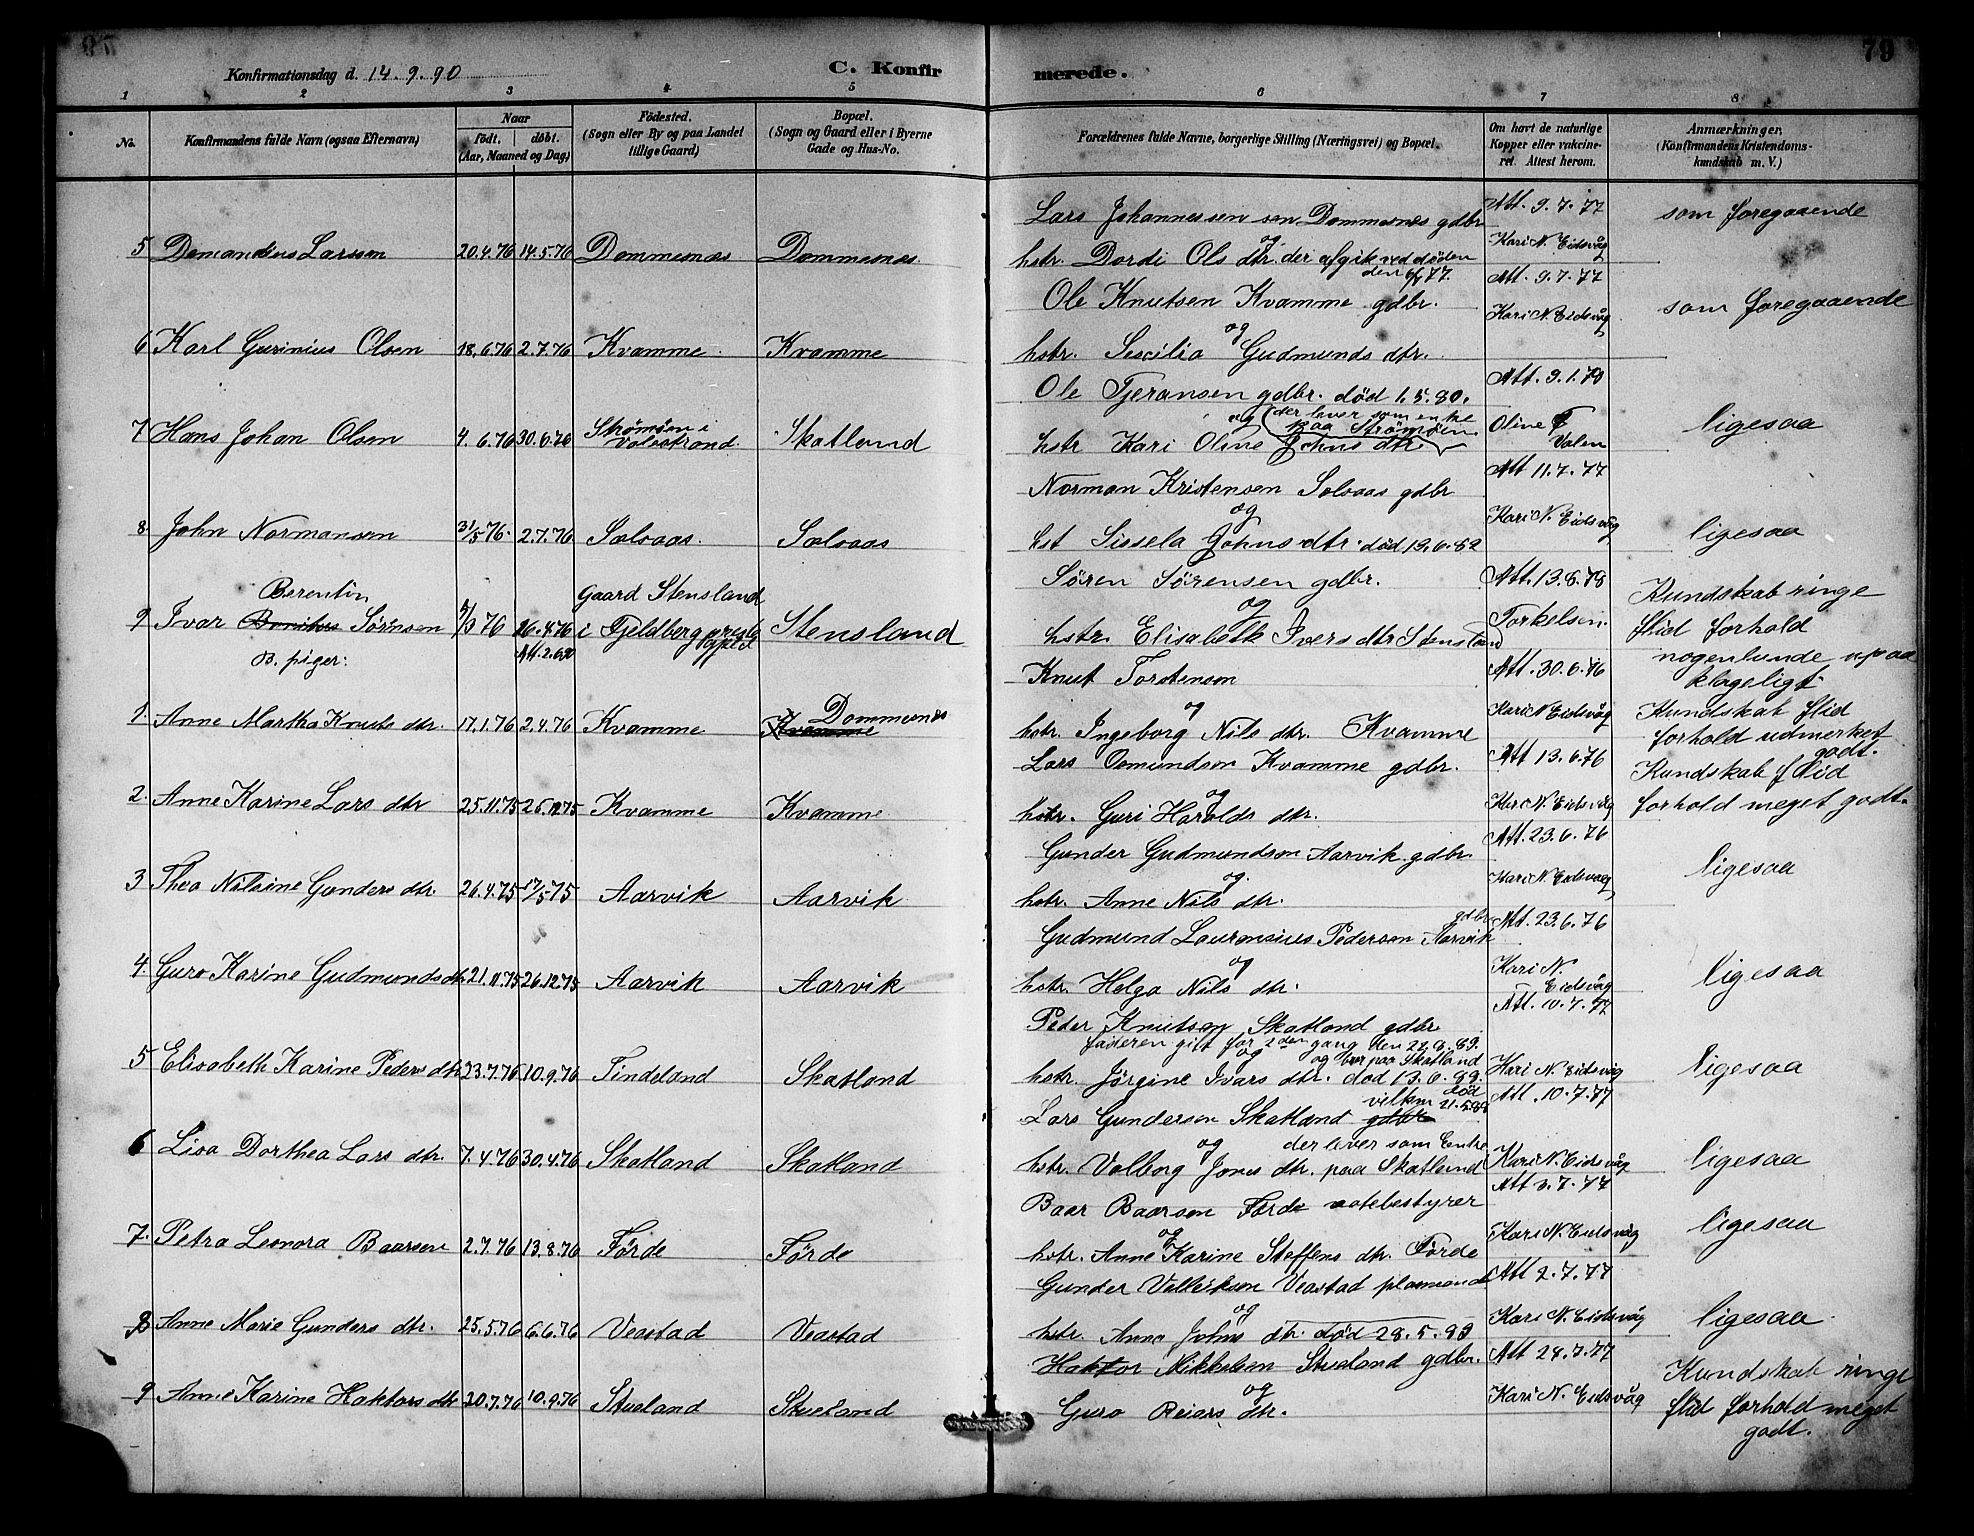 79
Konfirmationsdag d. 14.9.90
C. Konfirmerede.
1 2 3 4 5 6 7 8
No.
Konfirmandens fulde Navn (ogsaa Efternavn)
Naar
födt. döbt.
(Aar, Maaned og Dag)
Födested.
(Sogn eller By og paa Landet
tillige Gaard)
Bopæl.
(Sogn og Gaard eller i Byerne
Gade og Hus-No.
Forældrenes fulde Navne, borgerlige Stilling (Næringsvei) og Bopæl.
Om havt de naturlige
Kopper eller vakcine-
ret. Attest herom.
Anmærkninger,
(Konfirmandens Kristendoms-
kundskab m. V.)
Lars Johannessen Dommesnes gdbr Att. 9.7.77 som foregaaende
5 Larsson 20.4.76 14.5.76 Dommesnes Dommesnes
og
hstr. Dordi Ols dtr. der afgik ved döden Kari N. Eidsvåg
Ole Knutsen Kvamme gdbr. Att. 9.7.77 som foregaaende
6 Karl Gurinius Olsen 18.6.76 2.7.76 Kvamme Kvamme
og
hstr. Sescilia Gudmunds dtr. Kari N. Eidsvåg
Ole Tjeransen gdbr. död 1.5.80. Att. 9.1.78
7 Hans Johan Olsen 4.6.76 30.6.76 Strömöen i
Valestrand Skatland
og (der lever som enke
paa Strömöen
hstr Kari Oline Johns dtr Oline
Valen ligesaa
Norman Kristensen Solsaas gdbr Att 11.7.77
8. John Normansen 31/5 76. 2.7.76 Solsaas. Solsaas
og
hst Sissela Johns dtr. död 13.6.82 Kari N. Eidsvåg ligesaa
Sören Sörensen gdbr. Att. 13.8.78
Berentin
9 Ivar Sörensen 76 26.4.76 Gaard Stensland
i Fjeldberg præstg Stensland
og
hstr. Elisabeth Ivers dtr Stensland Torkelsen.
Kundskab ringe
flid forhold
nogenlunde
klageligt
B. piger:
Knut Torstensen Att. 30.6.76
1 Anne Martha Knuts dtr. 17.1.76 2.4.76 Kvamme Kvamme Dommesnes
og
hstr. Ingeborg Nils dtr. Kvamme Kari N Eidsvåg
Kundskab flid
forhold udmerket
godt.
Lars Osmundson Kvamme gdbr. Att 13.6.76
2. Anne Karine Lars dtr 25.11.75 26.12.75 Kvamme Kvamme
og
hstr. Guri Haralds dtr. Kari N. Eidsvåg
Kundskab flid
forhold meget godt.
Gunder Gudmundson Aarvik gdbr. Att. 23.6.76
3 Thea Nilsine Gunders dtr. 26.4.75 17/5 75 Aarvik Aarvik
og
hstr. Anne Nils dtr. Kari N. Eidsvaag ligesaa
Gudmund Laurensius Pederson Aarvik gdbr Att. 23.6.76
4. Guro Karine Gudmunds dtr 21.11.75 26.12.75 Aarvik Aarvik
og
hstr. Helga Nils dtr. Kari N.
Eidsvåg ligesaa
Peder Knutson Skatland gdbr Att. 10.7.77
faderen gift for 2den gang den 22.8.89.
og og bor paa Skatland
5 Elisabeth Karine Peders dtr 23.7.76 10.9.76 Tindeland Skatland
hstr. Jörgine Ivars dtr. död 13.6.89. Kari N. Eidsvåg ligesaa
Lars Gunderson Skatland gdbr Att. 10.7.77
6 Lisa Dorthea Lars dtr. 7.4.76 30.4.76 Skatland Skatland
og der lever som Enke
hstr. Valborg Jons dtr. paa Skatland Kari N. Eidsvåg ligesaa
Baar Baarsen Förde Att 3.7.77
7. Petra Leonora Baarsen 2.7.76 13.8.76 Förde Förde
og
hstr. Anne Karine Steffens dtr. Förde Kari N. Eidsvåg ligesaa
Gunder Veastad Att 2.7.77
8 Anne Marie Gunders dtr. 25.5.76 6.6.76 Veastad Veastad
og
hstr. Anna Johns dtr. död 28.5.89 Kari N. Eidsvåg ligesaa
Haktor Mikkelsen Stueland gdbr. Att 24.7.77
9 Anne Karine Haktors dtr 20.7.76 10.9.76 Stueland Stueland
og
Guro Reiars dtr. Kari N. Eidsvåg
Kundskab ringe
flid forhold meget
godt.